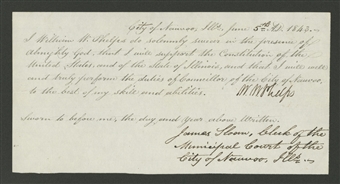 City of Nauvoo, Ills. June 5th AD. 1843.
I William W. Phelps do solemnly swear in the presence of
Almighty God, that I will support the Constitution of the
United States, and of the State of Illinois, and that I will well
and truly perform the duties of Committee of the City of Nauvoo,
to the best of my skill and abilities.
W. W. Phelps
Sworn to before me, the day and year above Written.
James Sloan, Clerk of the
Municipal Court of the
City of Nauvoo, Ills.